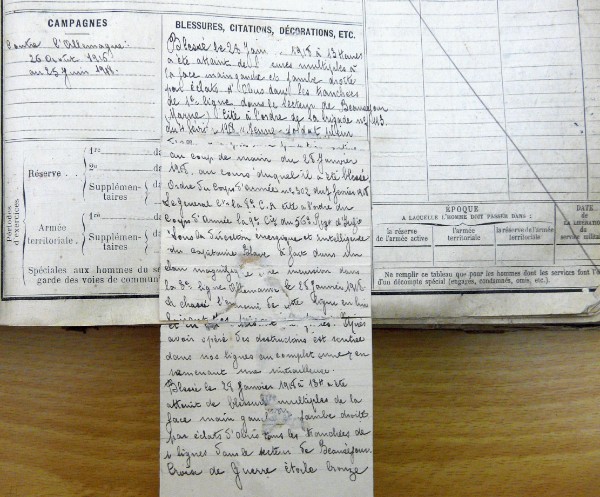 CAMPAGNES
Contre l'Allemagne:
26 Août 1915
au 25 Juin 1918.
BLESSURES, CITATIONS, DÉCORATIONS, ETC.
Blessé le 28 Juin 1918 à 13 heures
a été atteint de multiples à
la face main gauche et jambe droite
par éclats d'obus dans les tranchées
de 1e ligne dans le secteur de Beauséjour
(Marne) Cité à l'ordre de la brigade no 113
du 1918 "Jeune soldat
au coup de main du 28 Janvier
1918, au cours duquel il a été blessé
Ordre du Corps d'Armée no 302 du 7 février 1918
Le général Ct le 8e C.A cite à l'ordre du
Corps d'Armée la 9e Cie du 56e Régt d'Infie
Sous la direction énergique et intelligente
du capitaine a fait dans un
élan magnifique une incursion dans
la 3e ligne Allemande le 28 Janvier 1918
a chassé l'ennemi de cette ligne en lui
faisant des
avoir opéré des destructions est rentrée
dans nos lignes au complet en
ramenant une mitrailleuse.
Blessé le 28 Janvier 1918 à 13h a été
atteint de blessures multiples de la
face main gauche jambe droite
par éclats d'obus dans les tranchées de
1e lignes dans le secteur de Beauséjour
Croix de Guerre étoile bronze
Périodes
d'exercices
Réserve
1re
2e
Supplémen-
taires
Armée
territoriale.
1re
Supplémen-
taires
Spéciales aux hommes du
garde des voies de commun
ÉPOQUE
A LAQUELLE L'HOMME DOIT PASSER DANS :
la réserve
de l'armée active
l'armée
territoriale
la réserve de l'armée
territoriale.
DATE
DE LA LIBÉRATION
du service
militaire
Ne remplir ce tableau que pour les hommes dont les services font l'
d'un décompte spécial (engagés, condamnés, omis, etc.).